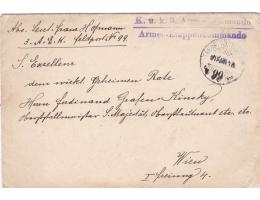 Abs. Leut. Franz Hofmann
3. A. E. K. Feldpost No 99.
K. u. k. 3. Armeekommando
Armee-Etappenkommando
99
S. Exzellenz
dem wirkl. Geheimen Rate
Herrn Ferdinand Grafen Kinsky,
Oberststallmeister S. Majestät, etc. etc.
Wien
I Freiung 4.